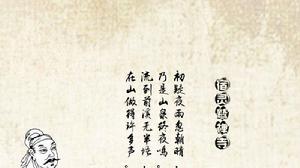 宿灵鹫禅寺
初疑夜雨忽朝晴
乃是山泉终夜鸣
流到前溪无半语
在山做得许多声